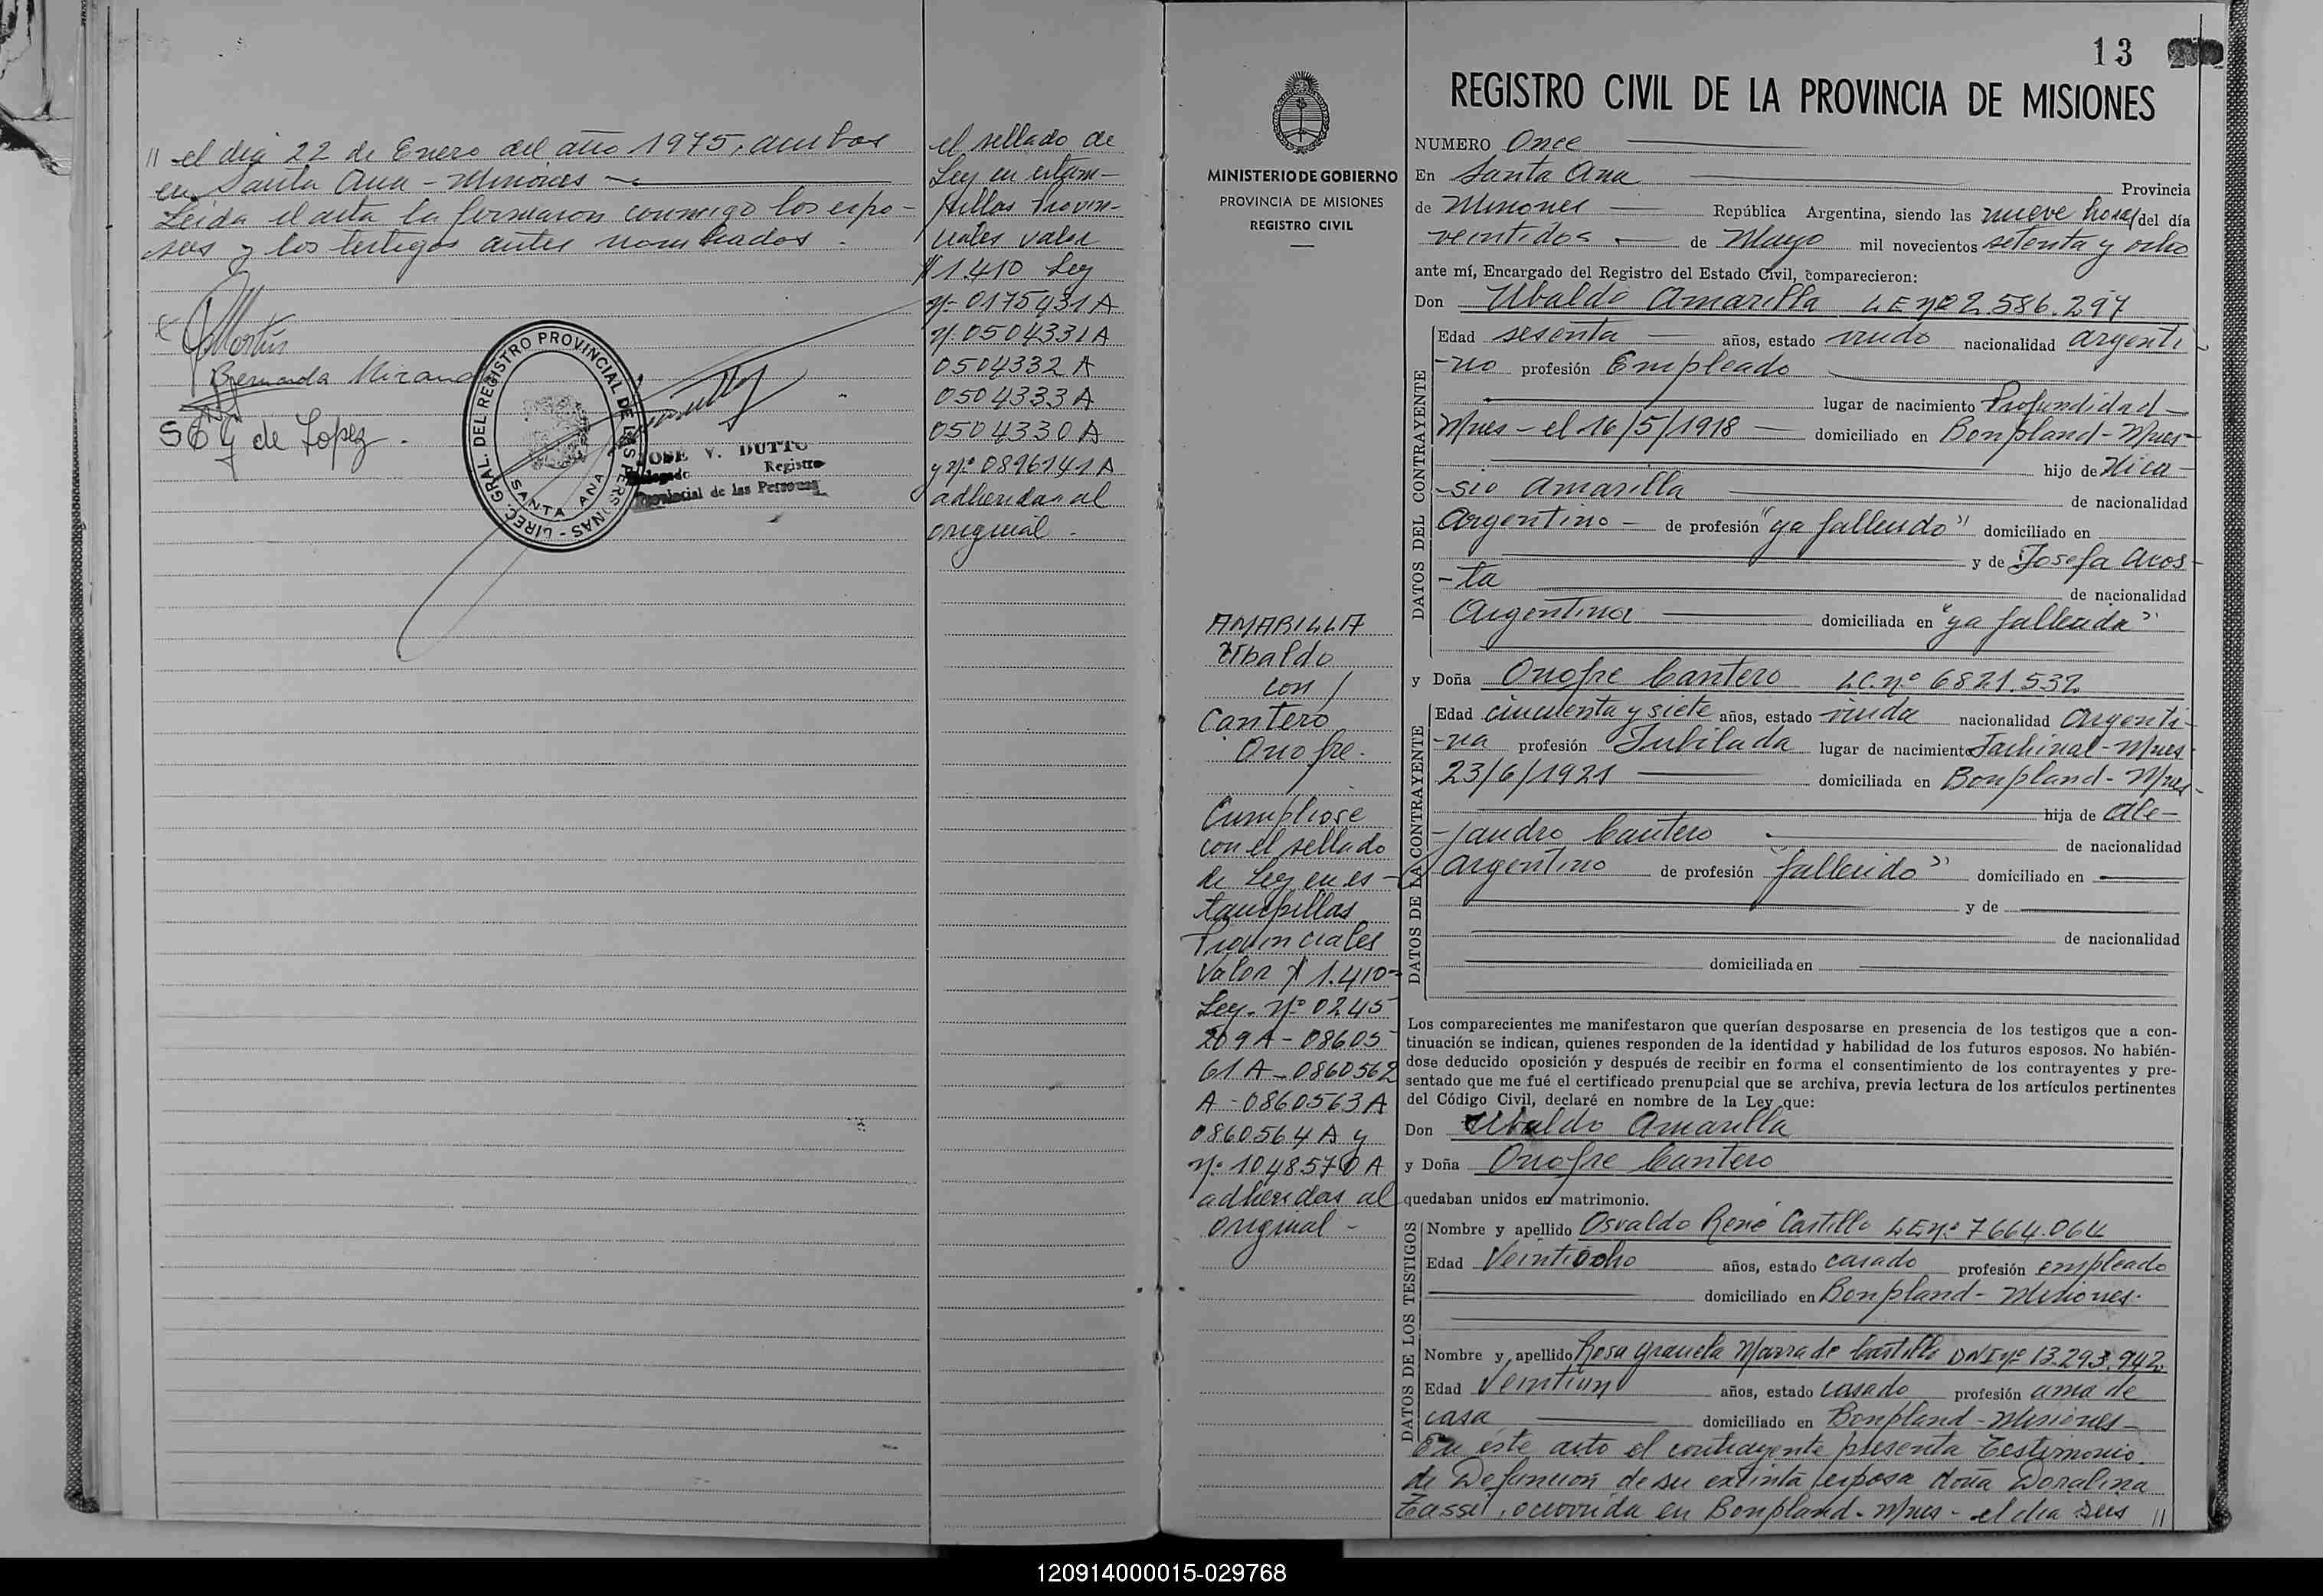 // el dia 22 de Enero del año 1975, ambos
en Santa Ana - Misiones
Leida el acta la firmaron conmigo los espo-
sos y los testigos antes nombrados.
Bernarda Miranda
de Lopez.
DIREC. GRAL. DEL REGISTRO PROVINCIAL DE LAS PERSONAS - SANTA ANA
JOSE V. DUTTO
Delegado Registro
Provincial de las Personas
el sellado de
Ley en estam-
pillas Provin-
ciales valor
$ 1.410 Ley
Nº 0175431 A
Nº 0504331 A
0504332 A
0504333 A
0504330 A
y Nº 0896141 A
adheridas al
original.
13
MINISTERIO DE GOBIERNO
PROVINCIA DE MISIONES
REGISTRO CIVIL
AMARILLA
Ubaldo
con /
Cantero
Onofre.
Cumpliose
con el sellado
de Ley en es-
tampillas
Provinciales
Valor $ 1.410-
Ley. Nº 0245
209 A - 08605
61 A - 0860562
A - 0860563 A
0860564 A y
Nº 1048570 A
adheridas al
original -
REGISTRO CIVIL DE LA PROVINCIA DE MISIONES
NUMERO Once
En Santa Ana Provincia
de Misiones República Argentina, siendo las nueve horas del día
veintidos de Mayo mil novecientos setenta y ocho
ante mí, Encargado del Registro del Estado Civil, comparecieron:
Don Ubaldo Amarilla LE nº 2.586.297
DATOS DEL CONTRAYENTE
Edad sesenta años, estado viudo nacionalidad argenti-
-no profesión Empleado
lugar de nacimiento Profundidad-
Mnes - el 16/5/1918 domiciliado en Bonpland - Mnes-
hijo de Nica-
-sio Amarilla de nacionalidad
Argentino - de profesión "ya fallecido" domiciliado en
y de Josefa Acos-
-ta de nacionalidad
Argentina domiciliada en "ya fallecida"
y Doña Onofre Cantero L.C. nº 6821.532
DATOS DE LA CONTRAYENTE
Edad cincuenta y siete años, estado viuda nacionalidad Argenti-
-na profesión Jubilada lugar de nacimiento Jachinal - Mnes
23/6/1921 domiciliada en Bonpland - Mnes-
hija de Ale-
-jandro Cantero de nacionalidad
argentino de profesión "fallecido" domiciliado en
y de
de nacionalidad
domiciliada en
Los comparecientes me manifestaron que querían desposarse en presencia de los testigos que a con-
tinuación se indican, quienes responden de la identidad y habilidad de los futuros esposos. No habién-
dose deducido oposición y después de recibir en forma el consentimiento de los contrayentes y pre-
sentado que me fué el certificado prenupcial que se archiva, previa lectura de los artículos pertinentes
del Código Civil, declaré en nombre de la Ley que:
Don Ubaldo Amarilla
y Doña Onofre Cantero
quedaban unidos en matrimonio.
DATOS DE LOS TESTIGOS
Nombre y apellido Osvaldo René Castillo LE Nº 7.664.064
Edad Veintiocho años, estado casado profesión empleado
domiciliado en Bonpland - Misiones.
Nombre y apellido Rosa Graciela Marra de Castillo DNI Nº 13.293.942
Edad Veintiun años, estado casado profesión ama de
casa domiciliado en Bonpland - Misiones -
En este acto el contrayente presenta Testimonio
de Defuncion de su extinta esposa doña Doralina
Tassi, ocurrida en Bonpland - Mnes - el dia seis //
120914000015-029768